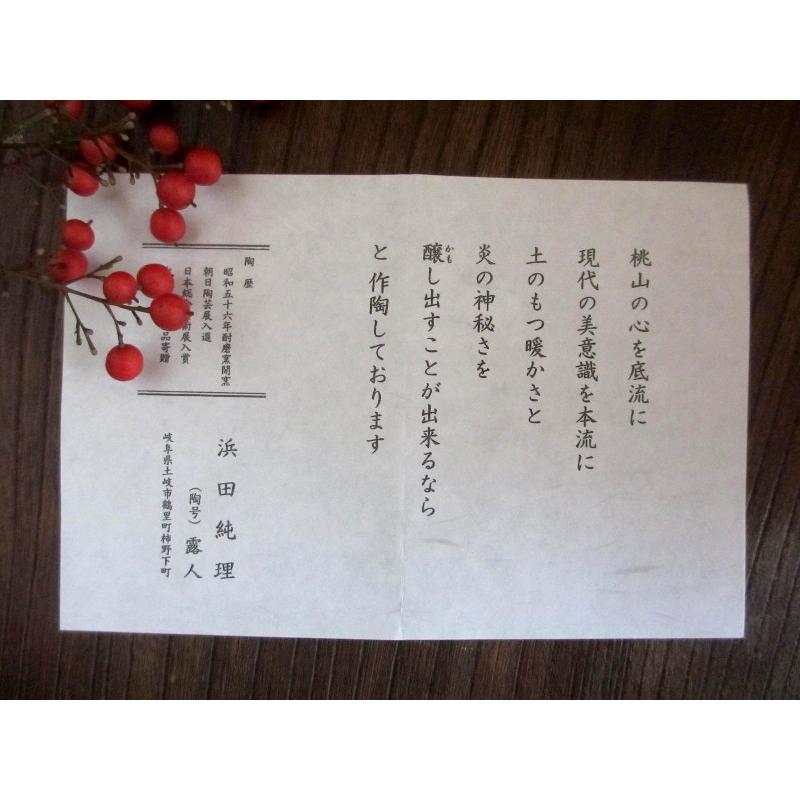 桃山の心を底流に
現代の美意識を本流に
土のもつ暖かさと
炎の神秘さを
醸し出すことが出来るなら
かも
と 作陶しております
陶歴
昭和五十六年耐磨窯開窯
朝日陶芸展入選
日本総 術展入賞
品寄贈
浜田純理
(陶号) 露人
岐阜県土岐市鶴里町柿野下町